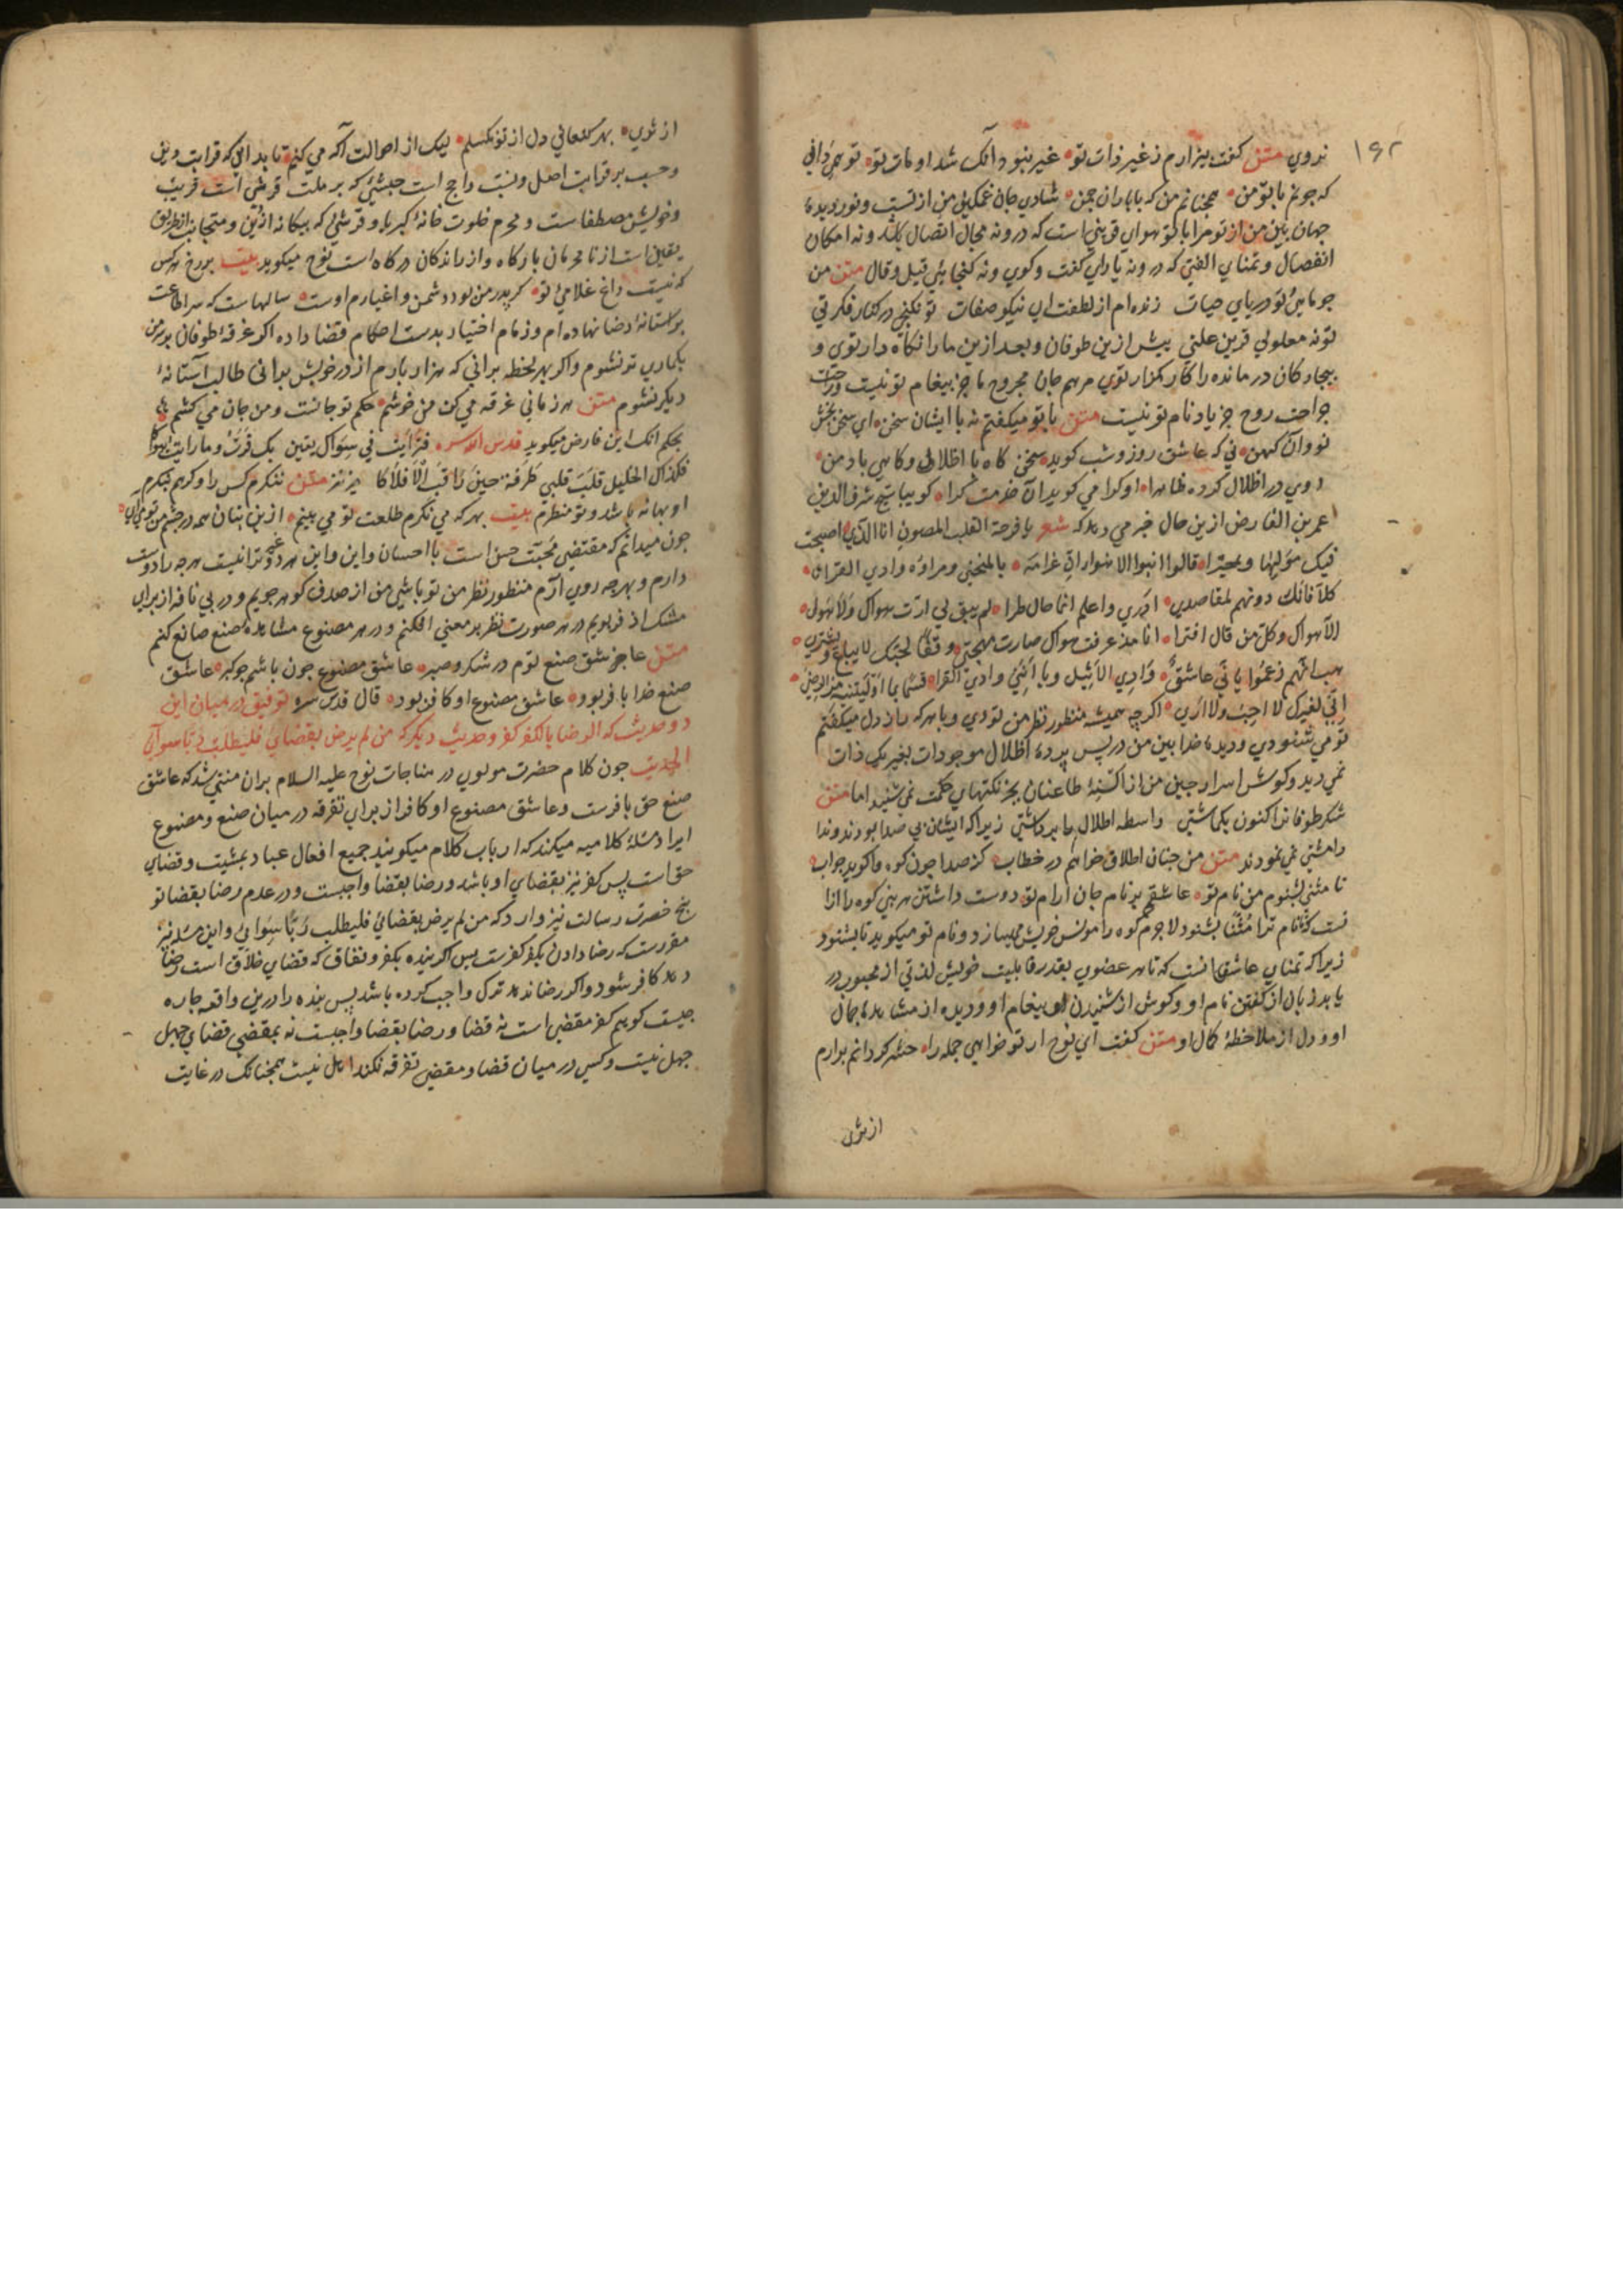 ۱۶۲
ندوي متن كفت بيزارم ز غير ذات تو غير نبود آنك شد او مات تو تو همي داني
كه چونم با تو من همچنانم من كه با باران چمن شادي جان غمكين من از تست و نور ديدۀ
جهان بين من از تو مرا با تو هواي قربتي است كه درو نه مجال اتصال باشد و نه امكان
انفصال و تمناي الفتي كه درو نه ياراي كفت وكوي و نه كنجايي قيل و قال متن من
چو ماهي تو درياي حيات زنده ام از لطفت اي نيكو صفات تو نكنجي در كنار فكرتي
تو نه معلولي قرين علتي پيش ازين طوفان و بعد ازين مارا توي و
بيچاركان در مانده را كار كزار توي مرهم جان مجروح ما جز پيغام تو نيست و راحت
جراحت روح جز ياد نام تو نيست متن با تو ميكفتم نه با ايشان سخن اي سخن بخش
نو و آن كهن ني كه عاشق روز و شب كويد سخن كاه با اطلال و كاهي با دمن
روي در اطلال كرده ظاهرا او كرا مي كويد آن مدحت كرا كوييا شيخ شرف الدين
عمر بن الفارض ازين حال خبر مي دهد كه شعر يا فرحة القلب المصون انا الذي اصبحت
فيك مولها و محيرا قالوا
كلا فانك دونهم لمقاصدي ادري واعلم انما حال طرا لم يبق لي ارب سواك ولا هوى
الا هواك وكل من قال افترا انا مذ عرفت هواك صارت مهجتي وقفا لحبك لا يباع ويشتري
هب انهم زعموا باني عاشق وادي الاثيل وبا وادي القرا قسما بما اوليتنيه من الرضى
اني لغيرك لا احب ولا اري اكرچه هميشه منظور نظر من توي و با هر كه راز دل ميكفتم
تو مي شنودي و ديدۀ خدا بين من در پس پردۀ اظلال موجودات بغير يك ذات
نمي ديد و كوش اسرار چين من از السنۀ طاعنان بجز نكتهاي حكمت نمي شنيد اما متن
شكر طوفانرا كنون بكماشتي واسطه اطلال را برداشتي زيراكه ايشان بي صدا بودند و ندا
را مثني نمي نمودند متن من چنان اطلال خواهم در خطاب كز صدا چون كوه واكويد جواب
تا مثني بشنوم من نام تو عاشقم بر نام جان ارام تو دوست داشتن هر نبي كوه را ازا
نست كه تا نام ترا مثني بشنود لاجرم كوه را مونس خويش ميسازد و نام تو ميكويد تا بشنود
زيراكه تمناي عاشق انست كه تا هر عضوي بقدر قابليت خويش لذتي از محبوب در
يابد زبان از كفتن نام او و كوش از شنيدن پيغام او و ديده از مشاهدۀ جمال
او و دل از ملاحظۀ كمال او متن كفت اي نوح ار تو خواهي جمله را حشر كردانم برارم
از ثرى
از ثري بهر كنعاني دل از تو نكسلم ليك از احوالت آكه مي كنم تا بداني كه قرابت دين
و حسب بر قرابت اصل و نسب راجح است حبشي كه بر ملت قرشي است قريب
و خويش مصطفاست و محرم خلوت خانۀ كبريا و قرشي كه بيكانه ازين و متجانب از طريق
يقين است از نامحرمان باركاه و از راندكان دركاه است نوح ميكويد بيت بر رخ هر كس
كه نيست داغ غلامي تو كر پدر من بود دشمن و اغيارم اوست سالهاست كه سر اطاعت
بر آستانۀ رضا نهاده ام و زمام اختيار بدست احكام قضا داده اكر غرقۀ طوفان بر من
بكماري تر نشوم و اكر بهر لحظه براني كه هزار بارم از در خويش براني طالب آستانۀ
ديكر نشوم متن هر زماني غرقه مي كن من خوشم حكم تو جانست و من جان مي كشم
بحكم انك ابن فارض ميكويد قدس الله سره في سواك بعين بك قرت وما رايت سواكا
فكذاك الخليل قلب قبلي طرفه حين راقب الافلاكا نيز متن ننكرم كس را و كر هم بنكرم
او بهانه باشد و تو منظرم بيت بهر كه مي نكرم طلعت تو مي بينم ازين بتان همه در چشم من تو مي آيي
چون ميدانم كه مقتضي محبت حسن است با احسان و اين و اين هر دو غير ترا نيست هر چه را دوست
دارم و بهر چه روي آرم منظور نظر من تو باشي من از صدف كوهر جويم و در پي نافه از براي
مشك اذفر پويم در هر صورت نظر بر معني افكنم و در هر مصنوع مشاهدۀ صنع صانع كنم
متن عاشق صنع توم در شكر و صبر عاشق مصنوع چون باشم چو كبر عاشق
صنع خدا با فر بود عاشق مصنوع او كافر بود قال قدس سره توفيق در ميان اين
دو حديث كه الرضا بالكفر كفر و حديث ديكر كه من لم يرض بقضائي فليطلب ربا سوائي
الحديث چون كلام حضرت مولوي در مناجات نوح عليه السلام بران منتهي شد كه عاشق
صنع حق با فرست و عاشق مصنوع او كافر از براي تفرقه در ميان صنع و مصنوع
ايراد مسئلۀ كلاميه ميكند كه ارباب كلام ميكويند جميع افعال عباد بمشيت و قضاي
حق است پس كفر نيز بقضاي او باشد و رضا بقضا واجبست و در عدم رضا بقضا تو
بيخ حضرت رسالت نيز وارد كه من لم يرض بقضائي فليطلب ربا سوائي و اين مسئله نيز
مقررست كه رضا دادن بكفر كفرست پس اكر بنده بكفر و نفاق كه قضاي خلاق است رضا
دهد كافر شود و اكر رضا ندهد ترك واجب كرده باشد پس بنده را درين واقعه چاره
چيست كوييم كفر مقضي است نه قضا و رضا بقضا واجبست نه بمقضي قضاي جهل
جهل نيست و كسي در ميان قضا و مقضي تفرقه نكند اهل نيست همچنانك در غايت